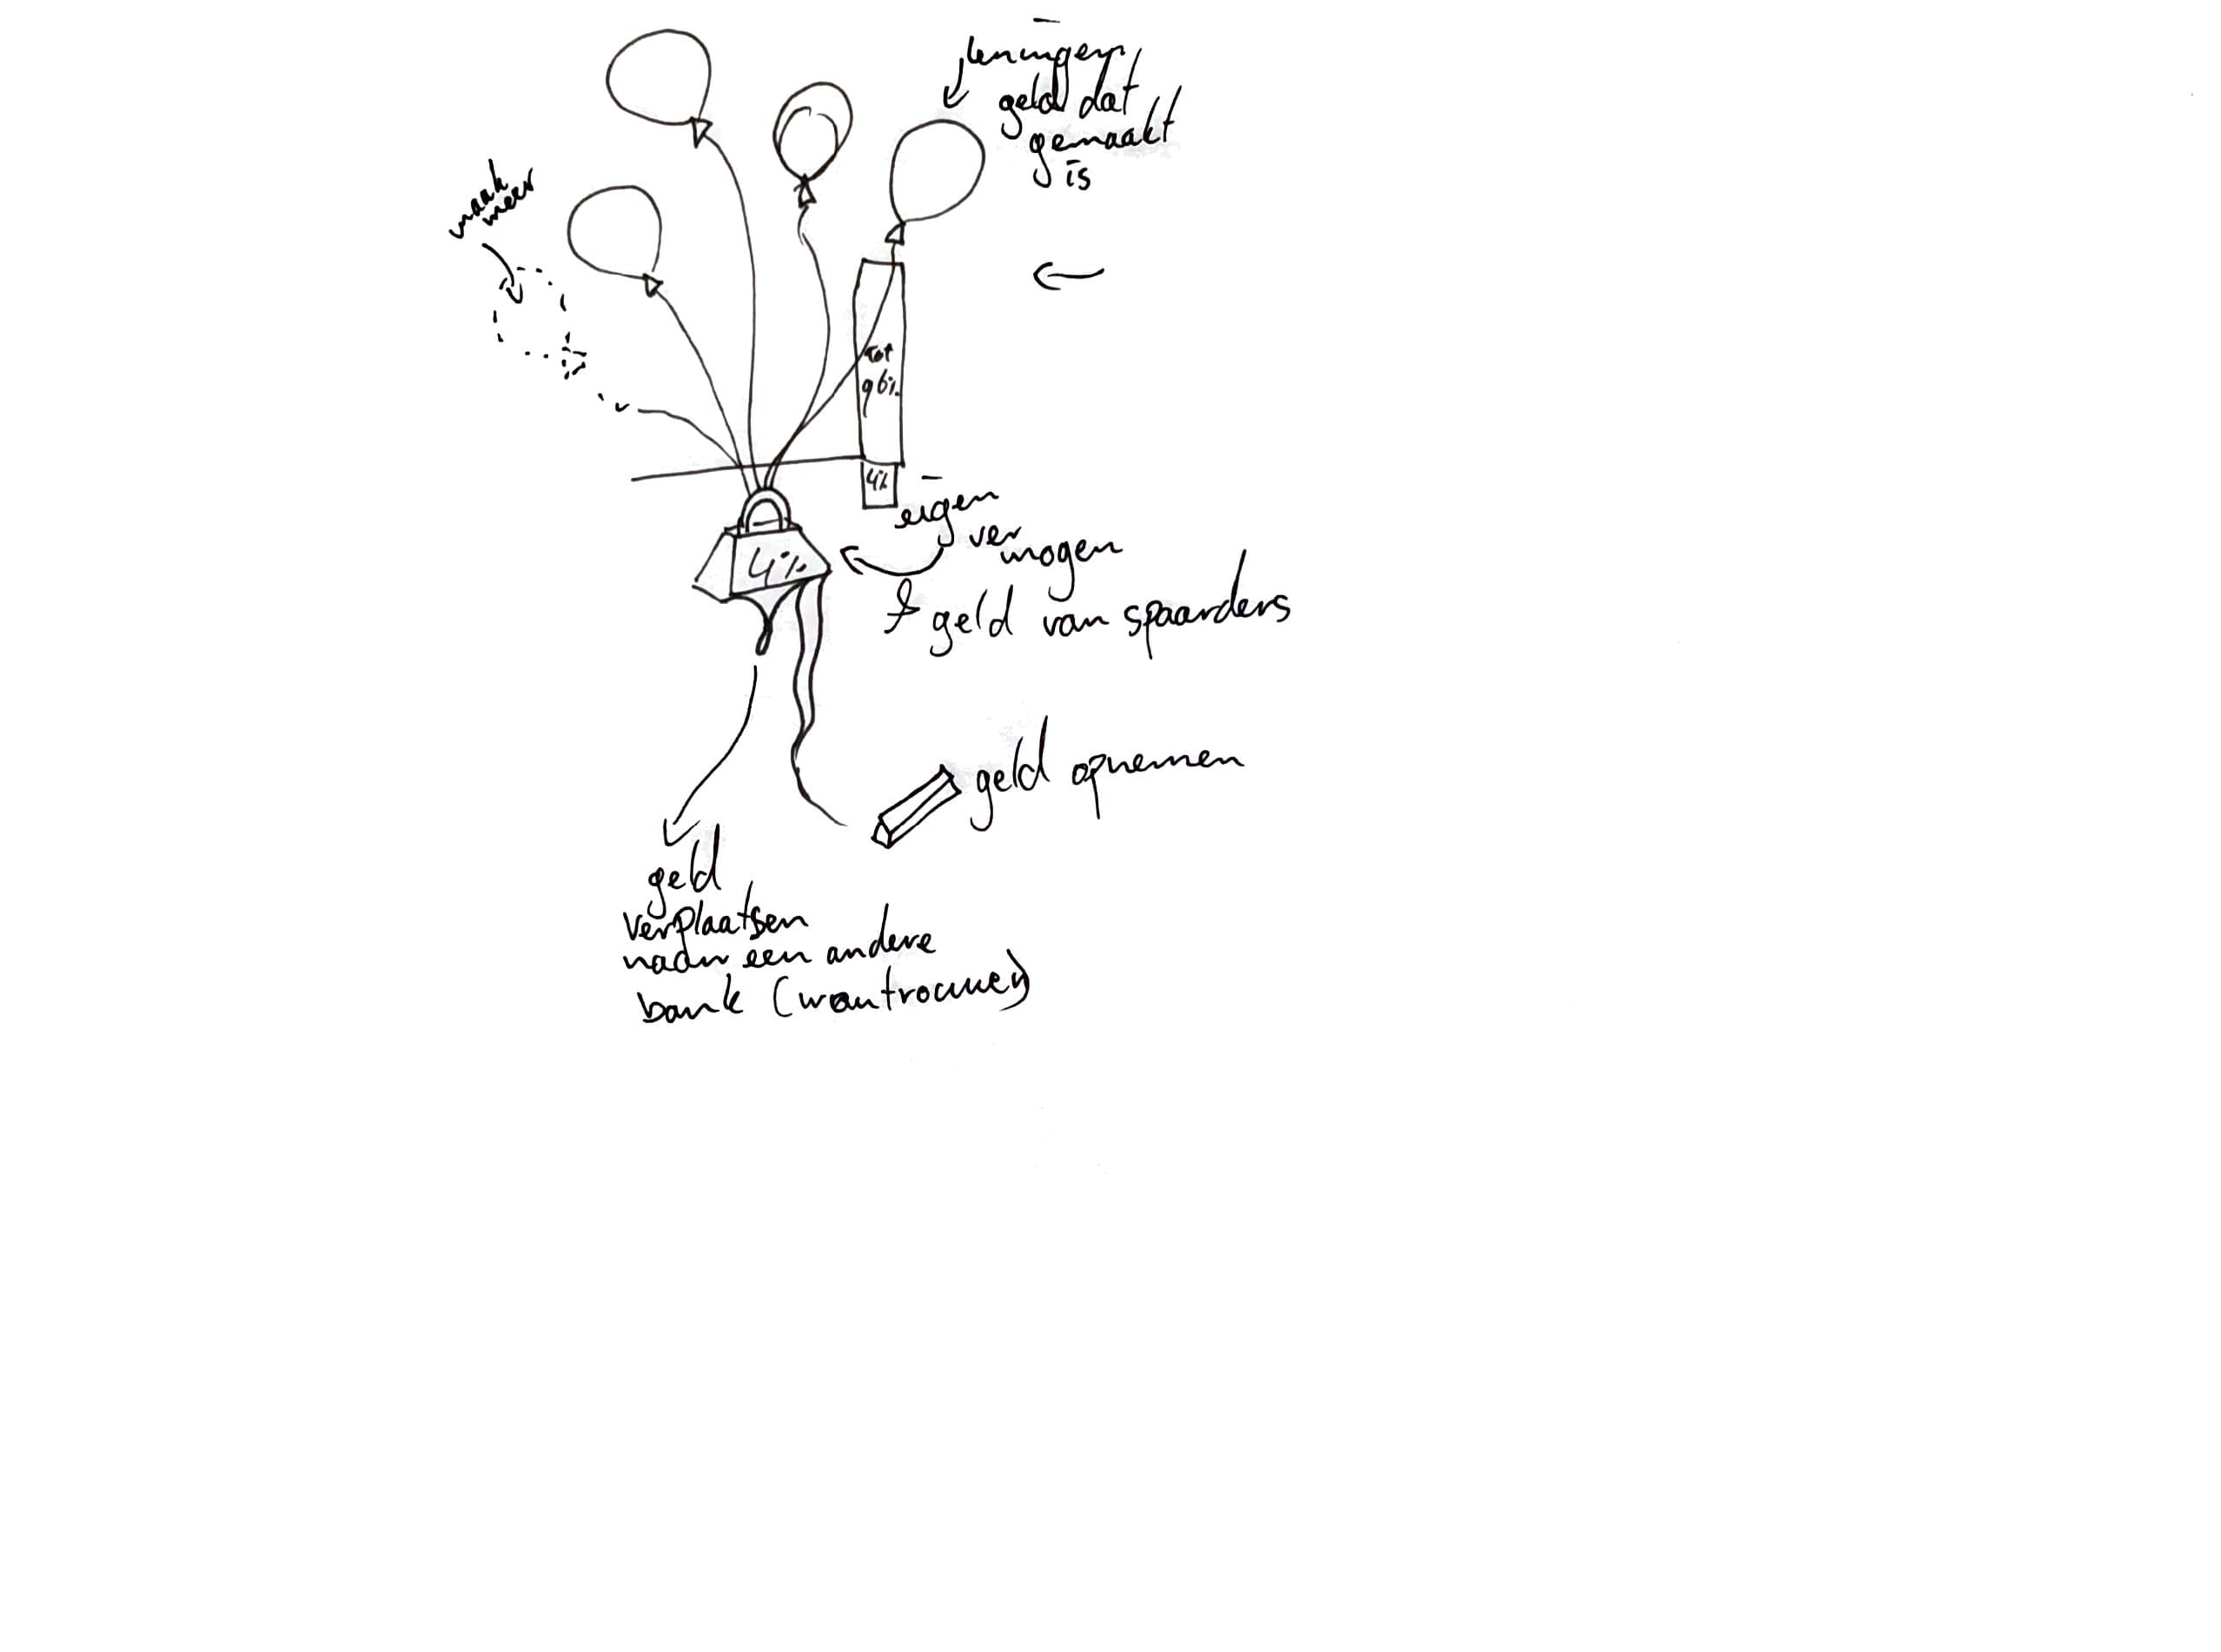 leningen
geld dat
gemaakt
is
maak
meer
tot
96%
4%
eigen
ver
mogen
4%
& geld van spaarders
geld opnemen
geld
verplaatsen
naar een andere
bank (wantrouwen)